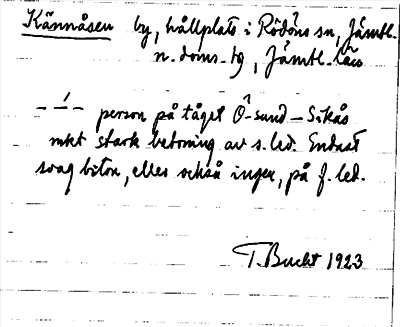 Kännåsen by, hållplats i Rödöns sn, Jämtl.
n. doms-tg, Jämtl. län
– ´ – person på tåget Ö-sund – Sikås
mkt stark betoning av s. led. Endast
svag biton, eller också ingen, på f. led.
T. Bucht 1923